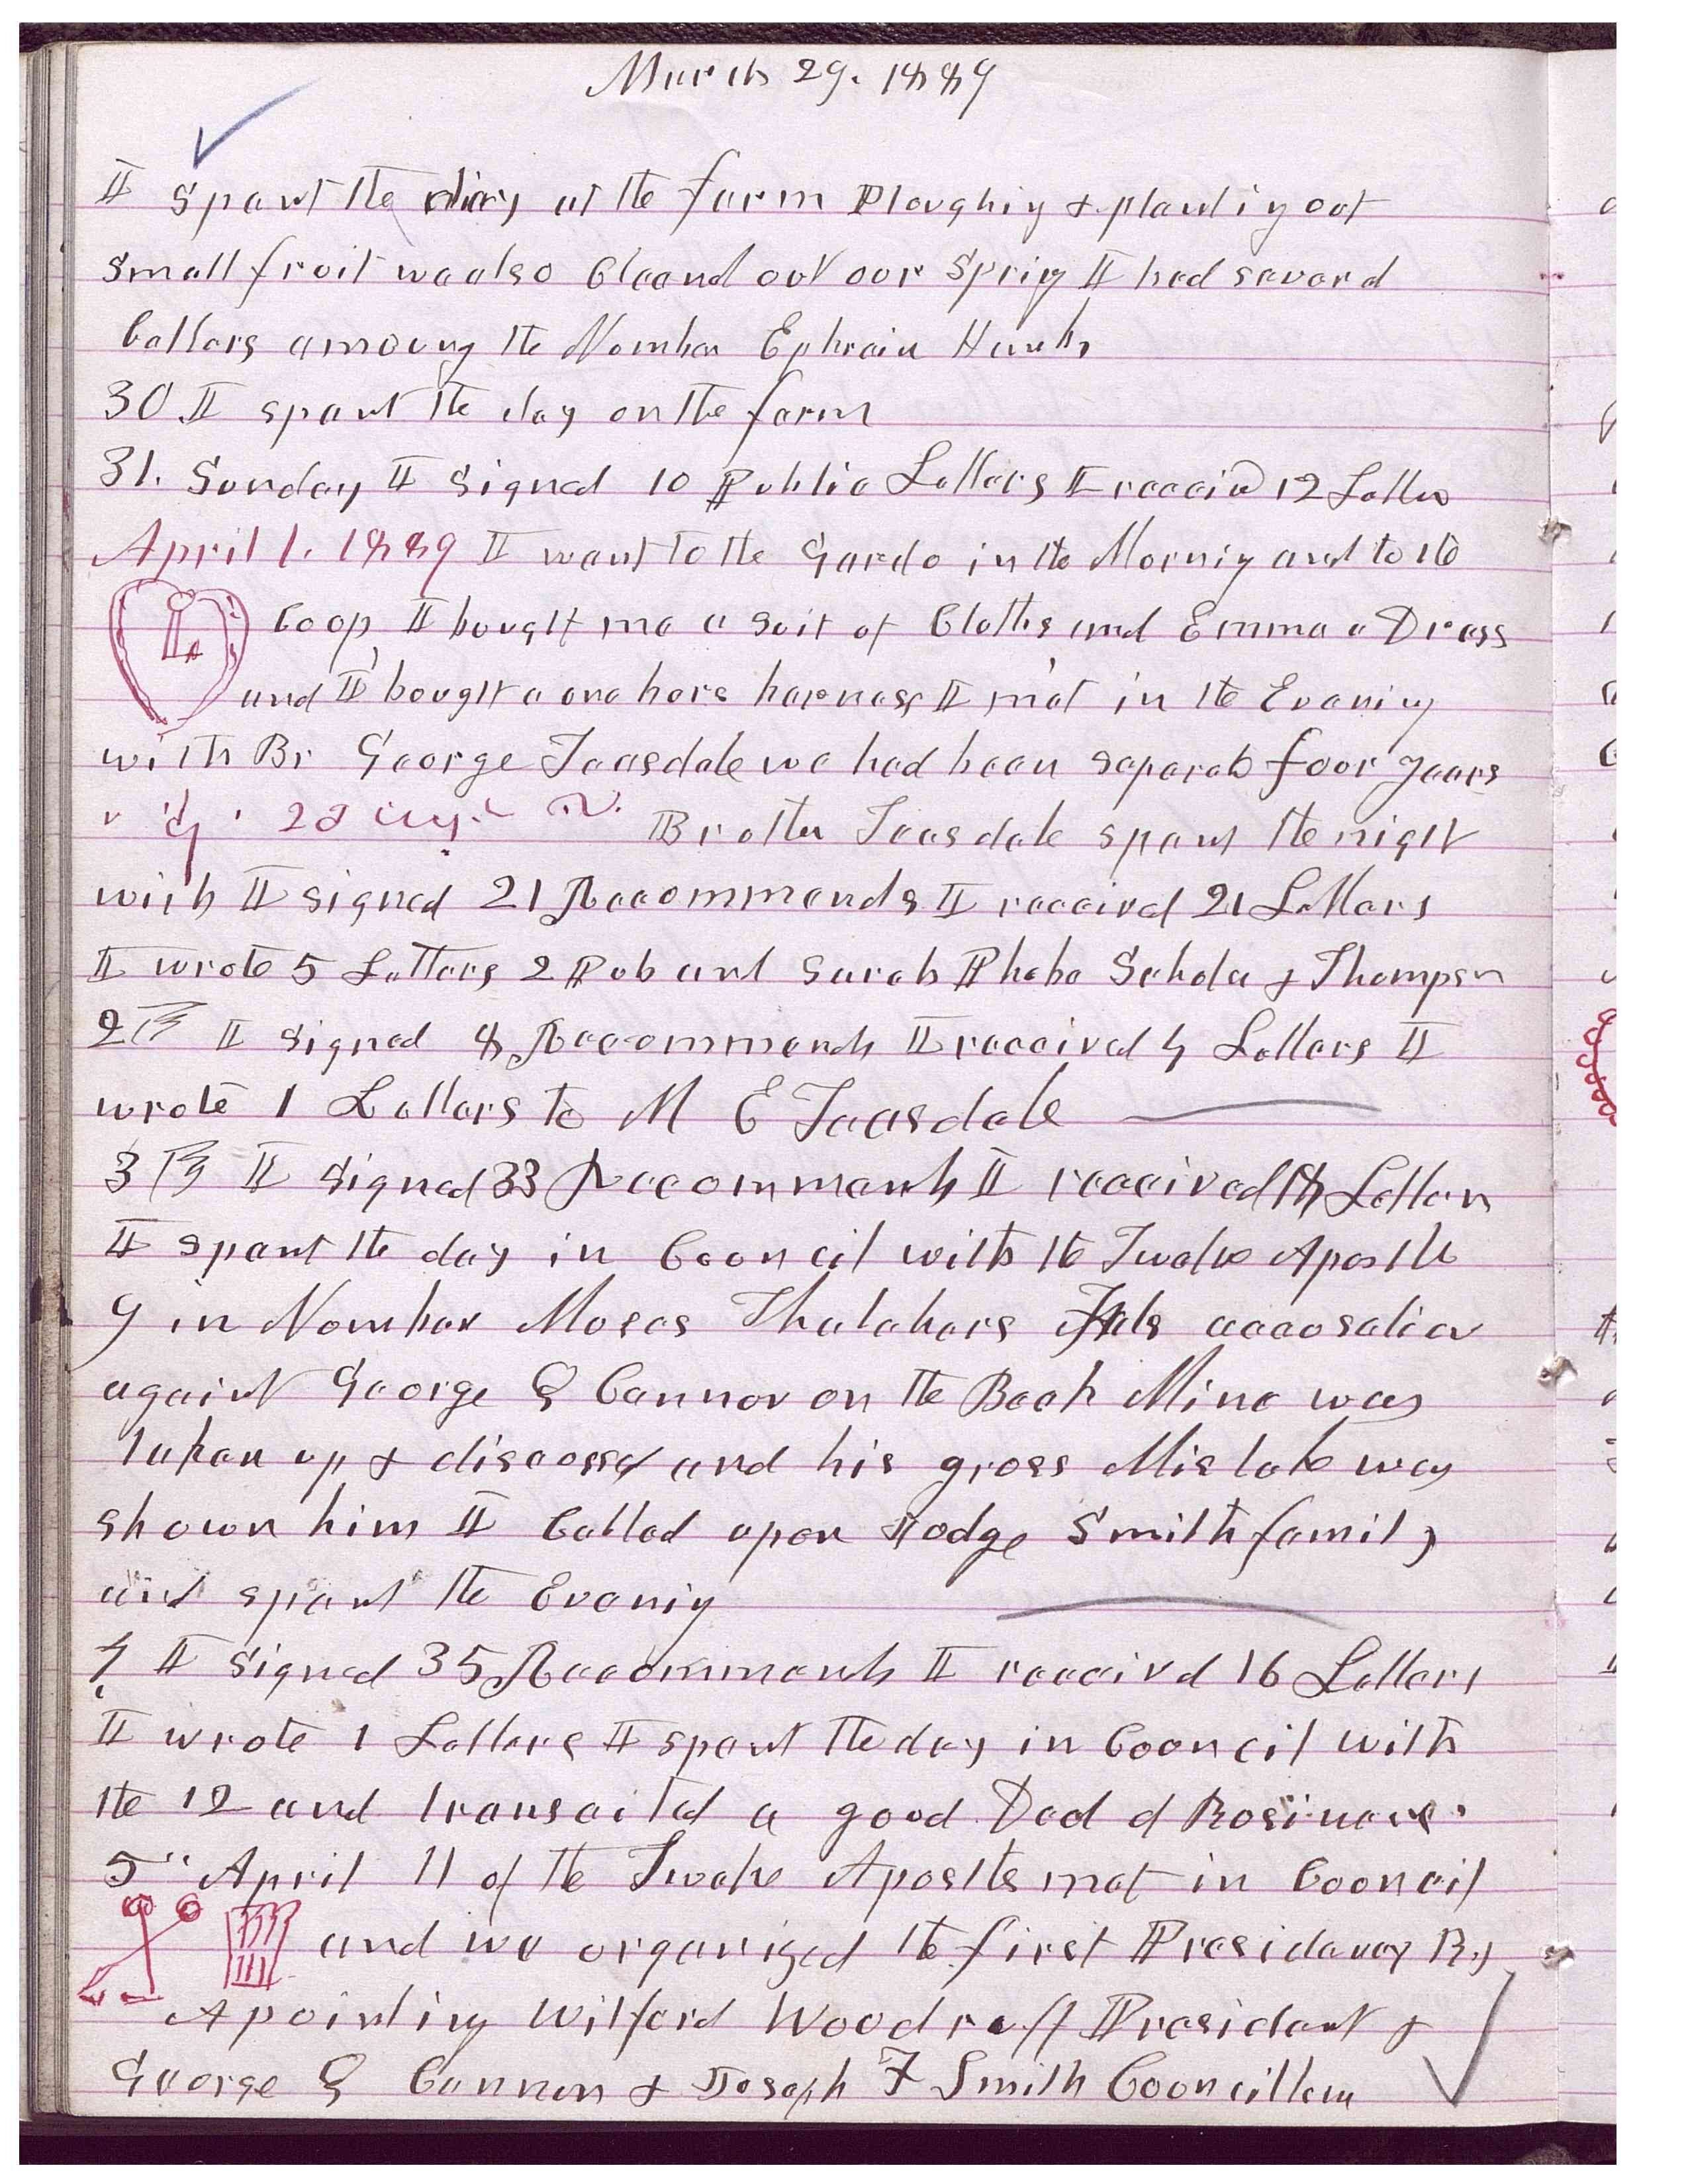 March 29. 1889
I spent the day at the farm Ploughing & planting out
small fruit we also Cleaned out our Spring I had several
Callers among the Number Ephraim Hanks
30 I spent the day on the farm
31. Sunday I signed 10 Public Letters I receivd 12 Letters
April 1. 1889 I went to the Gardo in the Morning and to the
Coop I bought me a suit of Cloths and Emma a Dress
and I bought a one hors harness I met in the Evening
with Br George Teasdale we had been separated four years
Brother Teasdale spent the night
with I signed 21 Recommends I received 21 Letters
I wrote 5 Letters 2 Pub and Sarah Phebe &
2nd I signed 8 Recommends I received 4 Letters I
wrote 1 Letters to M E Teasdale
3rd I signed 33 Recommends I received 18 Letters
I spent the day in Council with the Twelve Apostle
9 in Number Moses Thatchers accusation
against George Q Cannon on the Beck Mine was
taken up & discussed and his gross Mistake was
shown him I Called upon Judge Smith family
and spent the Evening
4 I signed 35 Recommends I receivd 16 Letters
I wrote 1 Letters I spent the day in Council with
the 12 and transacted a good Deal of Business
5" April 11 of the Twelve Apostles met in Council
and we organized the first Presidency By
Apointing Wilford Woodruff President &
George Q Cannon & Joseph F Smith Councillors